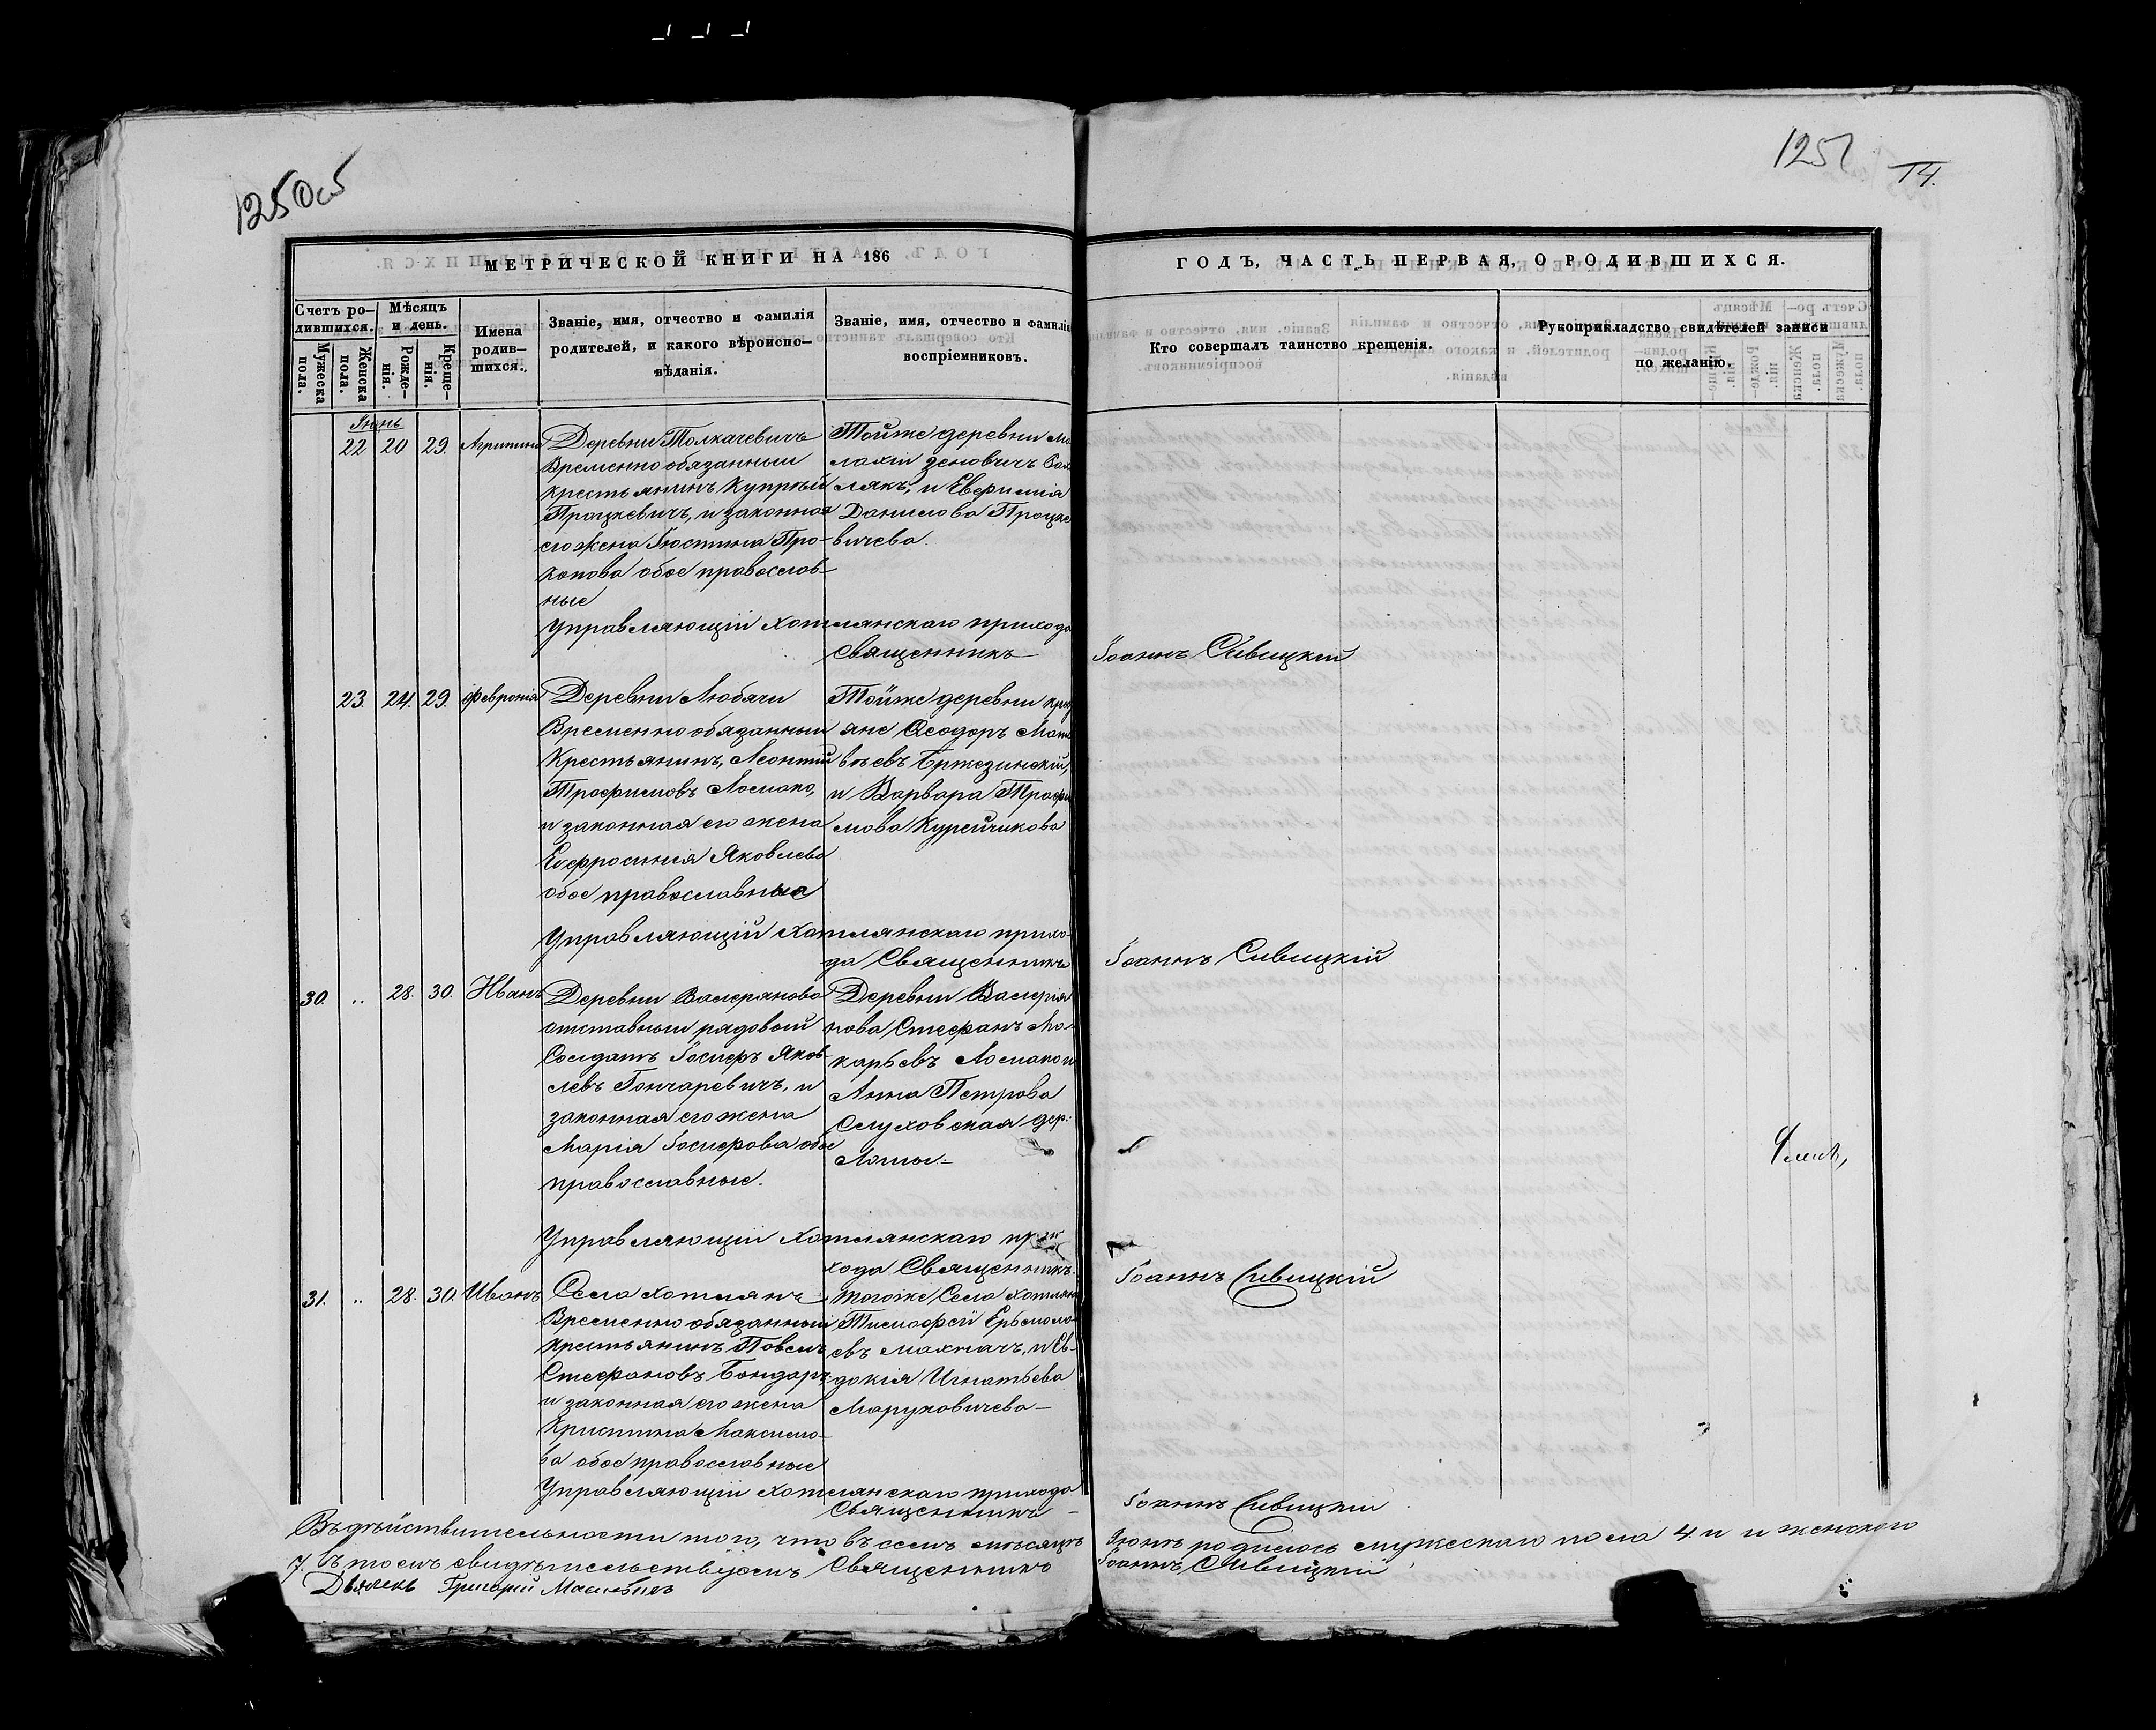 1250об
1251
14.
МЕТРИЧЕСКОЙ КНИГИ НА 186
ГОДЪ, ЧАСТЬ ПЕРВАЯ, О РОДИВШИХСЯ.
Счетъ ро-
дившихся.
Мужеска
пола.
Женска
пола.
Мѣсяцъ
и день.
Рожде-
нія.
Креще-
нія.
Имена
родив-
шихся.
Званіе, имя, отчество и фамилія
родителей, и какого вѣроиспо-
вѣданія.
Званіе, имя, отчество и фамилія
воспріемниковъ.
Кто совершалъ таинство крещенія.
Рукоприкладство свидѣтелей записи
по желанію.
Іюнь
22 20 29. Агрипина
Деревни Толкачевичъ
Временно обязанный
крестьянинъ Купріый
Працкевичъ, и законная
его жена Іюстина Про-
копова обое православ-
ные
Тойже деревни Ма
лахіи Зеновичъ
лякъ, и Евфимія
Данилова Працке
вичева.
Управляющій Хотлянскаго прихода
Священникъ Іоаннъ Сивицкій
23. 24. 29. Февронія
Деревни Любачи
Временно обязанный
Крестьянинъ, Леонтій
Трофимовъ Ломако,
и законная его жена
Ефросинія Яковлева
обое православные
Тойже деревни крес
яне Ѳеодоръ Мат
вѣевъ Бржезинскій,
и Варвара Трофи
мова Курейчикова
Управляющій Хотлянскаго прихо-
да Священникъ Іоаннъ Сивицкій
30. .. 28. 30. Иванъ
Деревни Валеряново
отставный рядовый
Солдатъ Іосифъ Яков-
левъ Гончаревичъ, и
законная его жена
Марія Іосифова обое
православные.
Деревни Валерія
нова Стефанъ Ма-
карьевъ Ломако и
Анна Петрова
Слуховская дер:
Управляющій Хотлянскаго при
хода Священникъ. Іоаннъ Сивицкій
31. .. 28. 30. Иванъ
Села Хотлянъ
Временно обязанный
крестьянинъ Павелъ
Стефановъ Бондаръ
и законная его жена
Христина Максимо-
ва обое православные
Тогоже Села Хотлянъ
Тимофей Ермола
евъ Махначъ, и Ев-
докія Игнатьева
Маруковичева-
Управляющій Хотлянскаго прихода
Священникъ Іоаннъ Сивицкій
Въ дѣйствительности того, что въ семъ мѣсяцѣ Іюнѣ родилось мужескаго пола 4. и и женскаго
7. въ томъ свидѣтельствуемъ Священникъ Іоаннъ Сивицкій
Дьячекъ Григорій